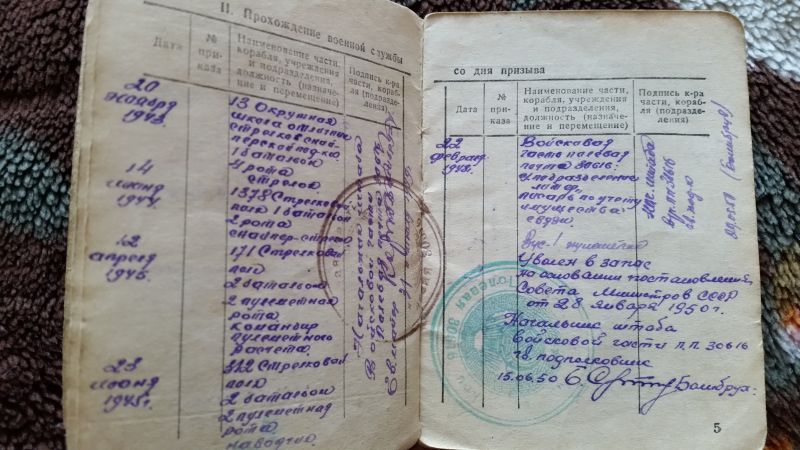 II. Прохождение военной службы
Дата
№ приказа
Наименование части,
корабля, учреждения
и подразделения,
должность (назначение
и перемещение)
Подпись к-ра
части, корабля
(подразделения)
20
ноября
1943.
13 Окружная
школа отличн
стрелков снай-
перской подг.
1 батальон
рота
стрелок
14
июня
1944.
1378 Стрелковый
полк 1 батальон
2 рота
снайпер-стрелок
12
апреля
1945.
171 Стрелковой
полк
2 батальон
2 пулеметная
рота
командир
пулеметного
расчета.
23
июня
1945г.
322 Стрелковой
полк
2 батальон
2 пулеметная
рота
наводчик.
Начальник штаба
Войсковой части
Полевая почта
Гв. майор
со дня призыва
Дата
№ приказа
Наименование части,
корабля, учреждения
и подразделения,
должность (назначение
и перемещение)
Подпись к-ра
части, корабля
(подразделения)
22
февраля
1948.
Войсковая
часть полевая
почта 30616.
писарь по учету
имущества
связи
Нач. штаба
Гв. м-р
Вус-1
Уволен в запас
на основании постановления
Совета Министров СССР
от 28 января 1950г.
Начальник штаба
Войсковой части п.п. 30616
гв. подполковник
15.06.50
Полевая
5